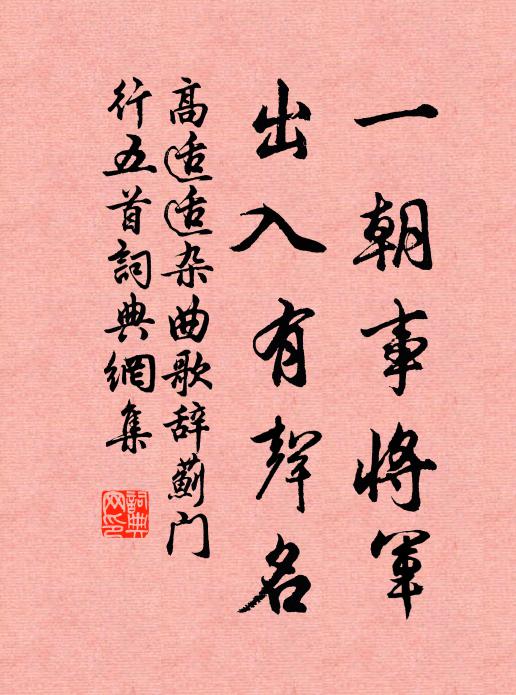 一朝事将軍
出入有聲名
高适适杂曲歌辞薊门
行五首詞典網集
詞典
网印